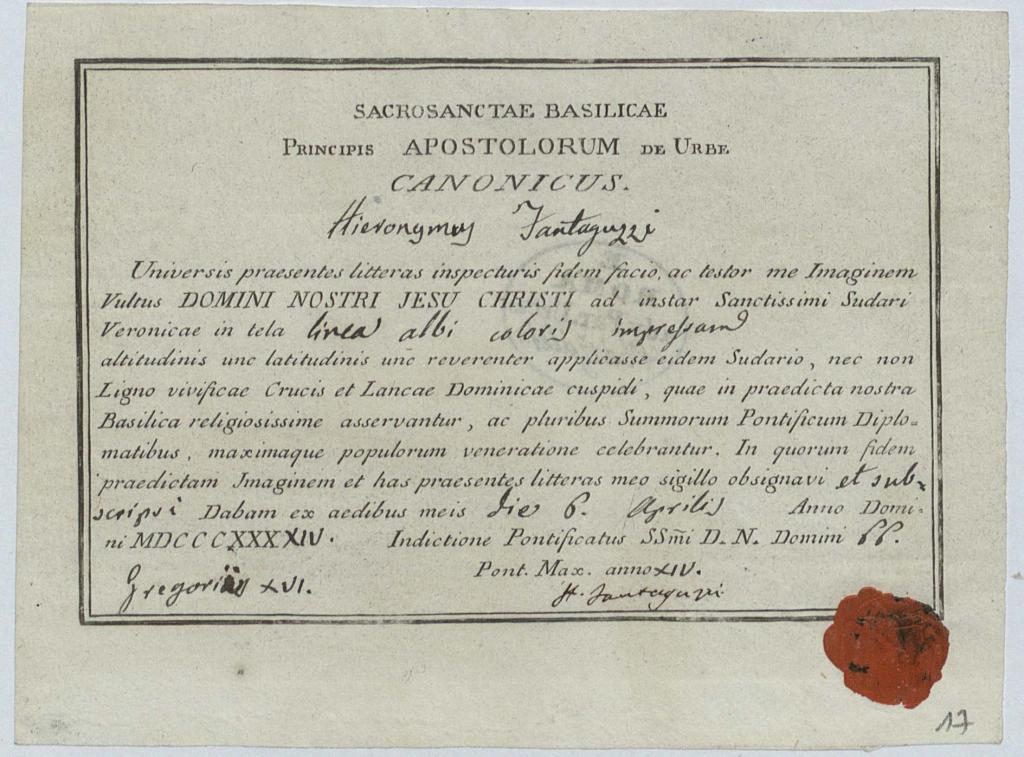 SACROSANCTAE BASILICAE
PRINCIPIS APOSTOLORUM DE URBE
CANONICUS.
Hieronymus Fantaguzzi
Universis praesentes litteras inspecturis fidem facio, ac testor me Imaginem
Vultus DOMINI NOSTRI JESU CHRISTI ad instar Sanctissimi Sudari
Veronicae in tela linea albi coloris impressam
altitudinis unc latitudinis unc reverenter applicasse eidem Sudario, nec non
Ligno vivificae Crucis et Lanceae Dominicae cuspidi, quae in praedicta nostra
Basilica religiosissime asservantur, ac pluribus Summorum Pontificum Diplo=
matibus, maximaque populorum veneratione celebrantur. In quorum fidem
praedictam Imaginem et has praesentes litteras meo sigillo obsignavi et sub=
scripsi Dabam ex aedibus meis die 6. Aprilis Anno Domi=
ni MDCCCXXXXIV. Indictione Pontificatus SSm̃i D. N. Domini PP.
Gregorii XVI. Pont. Max. anno XIV.
H. Fantaguzzi
17